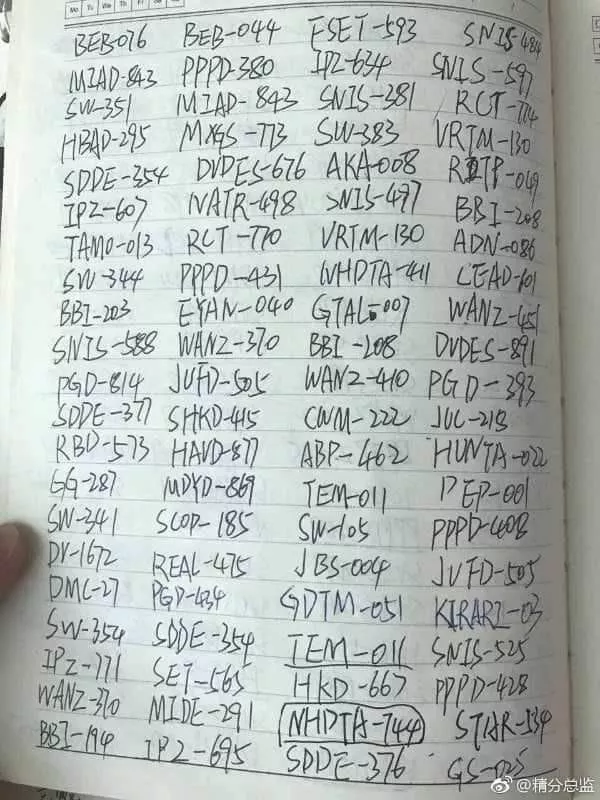 Mo Tu We Th Fr Sa Su
BEB-076 BEB-044 FSET-593 SNIS-484
MIAD-843 PPPD-380 IPZ-634 SNIS-597
SW-351 MIAD-843 SNIS-381 RCT-774
HBAD-295 MXGS-773 SW-383 VRTM-130
SDDE-354 DVDES-676 AKA-008
IPZ-607 NATR-498 SNIS-497 BBI-208
TAMO-013 RCT-770 VRTM-130 ADN-086
SW-344 PPPD-431 NHDTA-411 LEAD-101
BBI-203 EYAN-040 GTAL-007 WANZ-451
SNIS-588 WANZ-370 BBI-208 DVDES-891
PGD-814 JUFD-505 WANZ-410 PGD-393
SDDE-377 SHKD-415 CWM-222 JUC-213
RBD-573 HAVD-877 ABP-462 HUNTA-022
GG-287 MDYD-869 TEM-011 DEP-001
SW-341 SCOP-185 SW-105 PPPD-408
DV-1672 REAL-475 JBS-004 JUFD-505
DMC-27 PGD-434 GDTM-051 KIRARI-03
SW-354 SDDE-354 TEM-011 SNIS-525
IPZ-771 SET-565 HKD-667 PPPD-428
WANZ-370 MIDE-291 NHDTA-744 STAR-534
BBI-194 IPZ-695 SDDE-376 GS-025
@精分总监